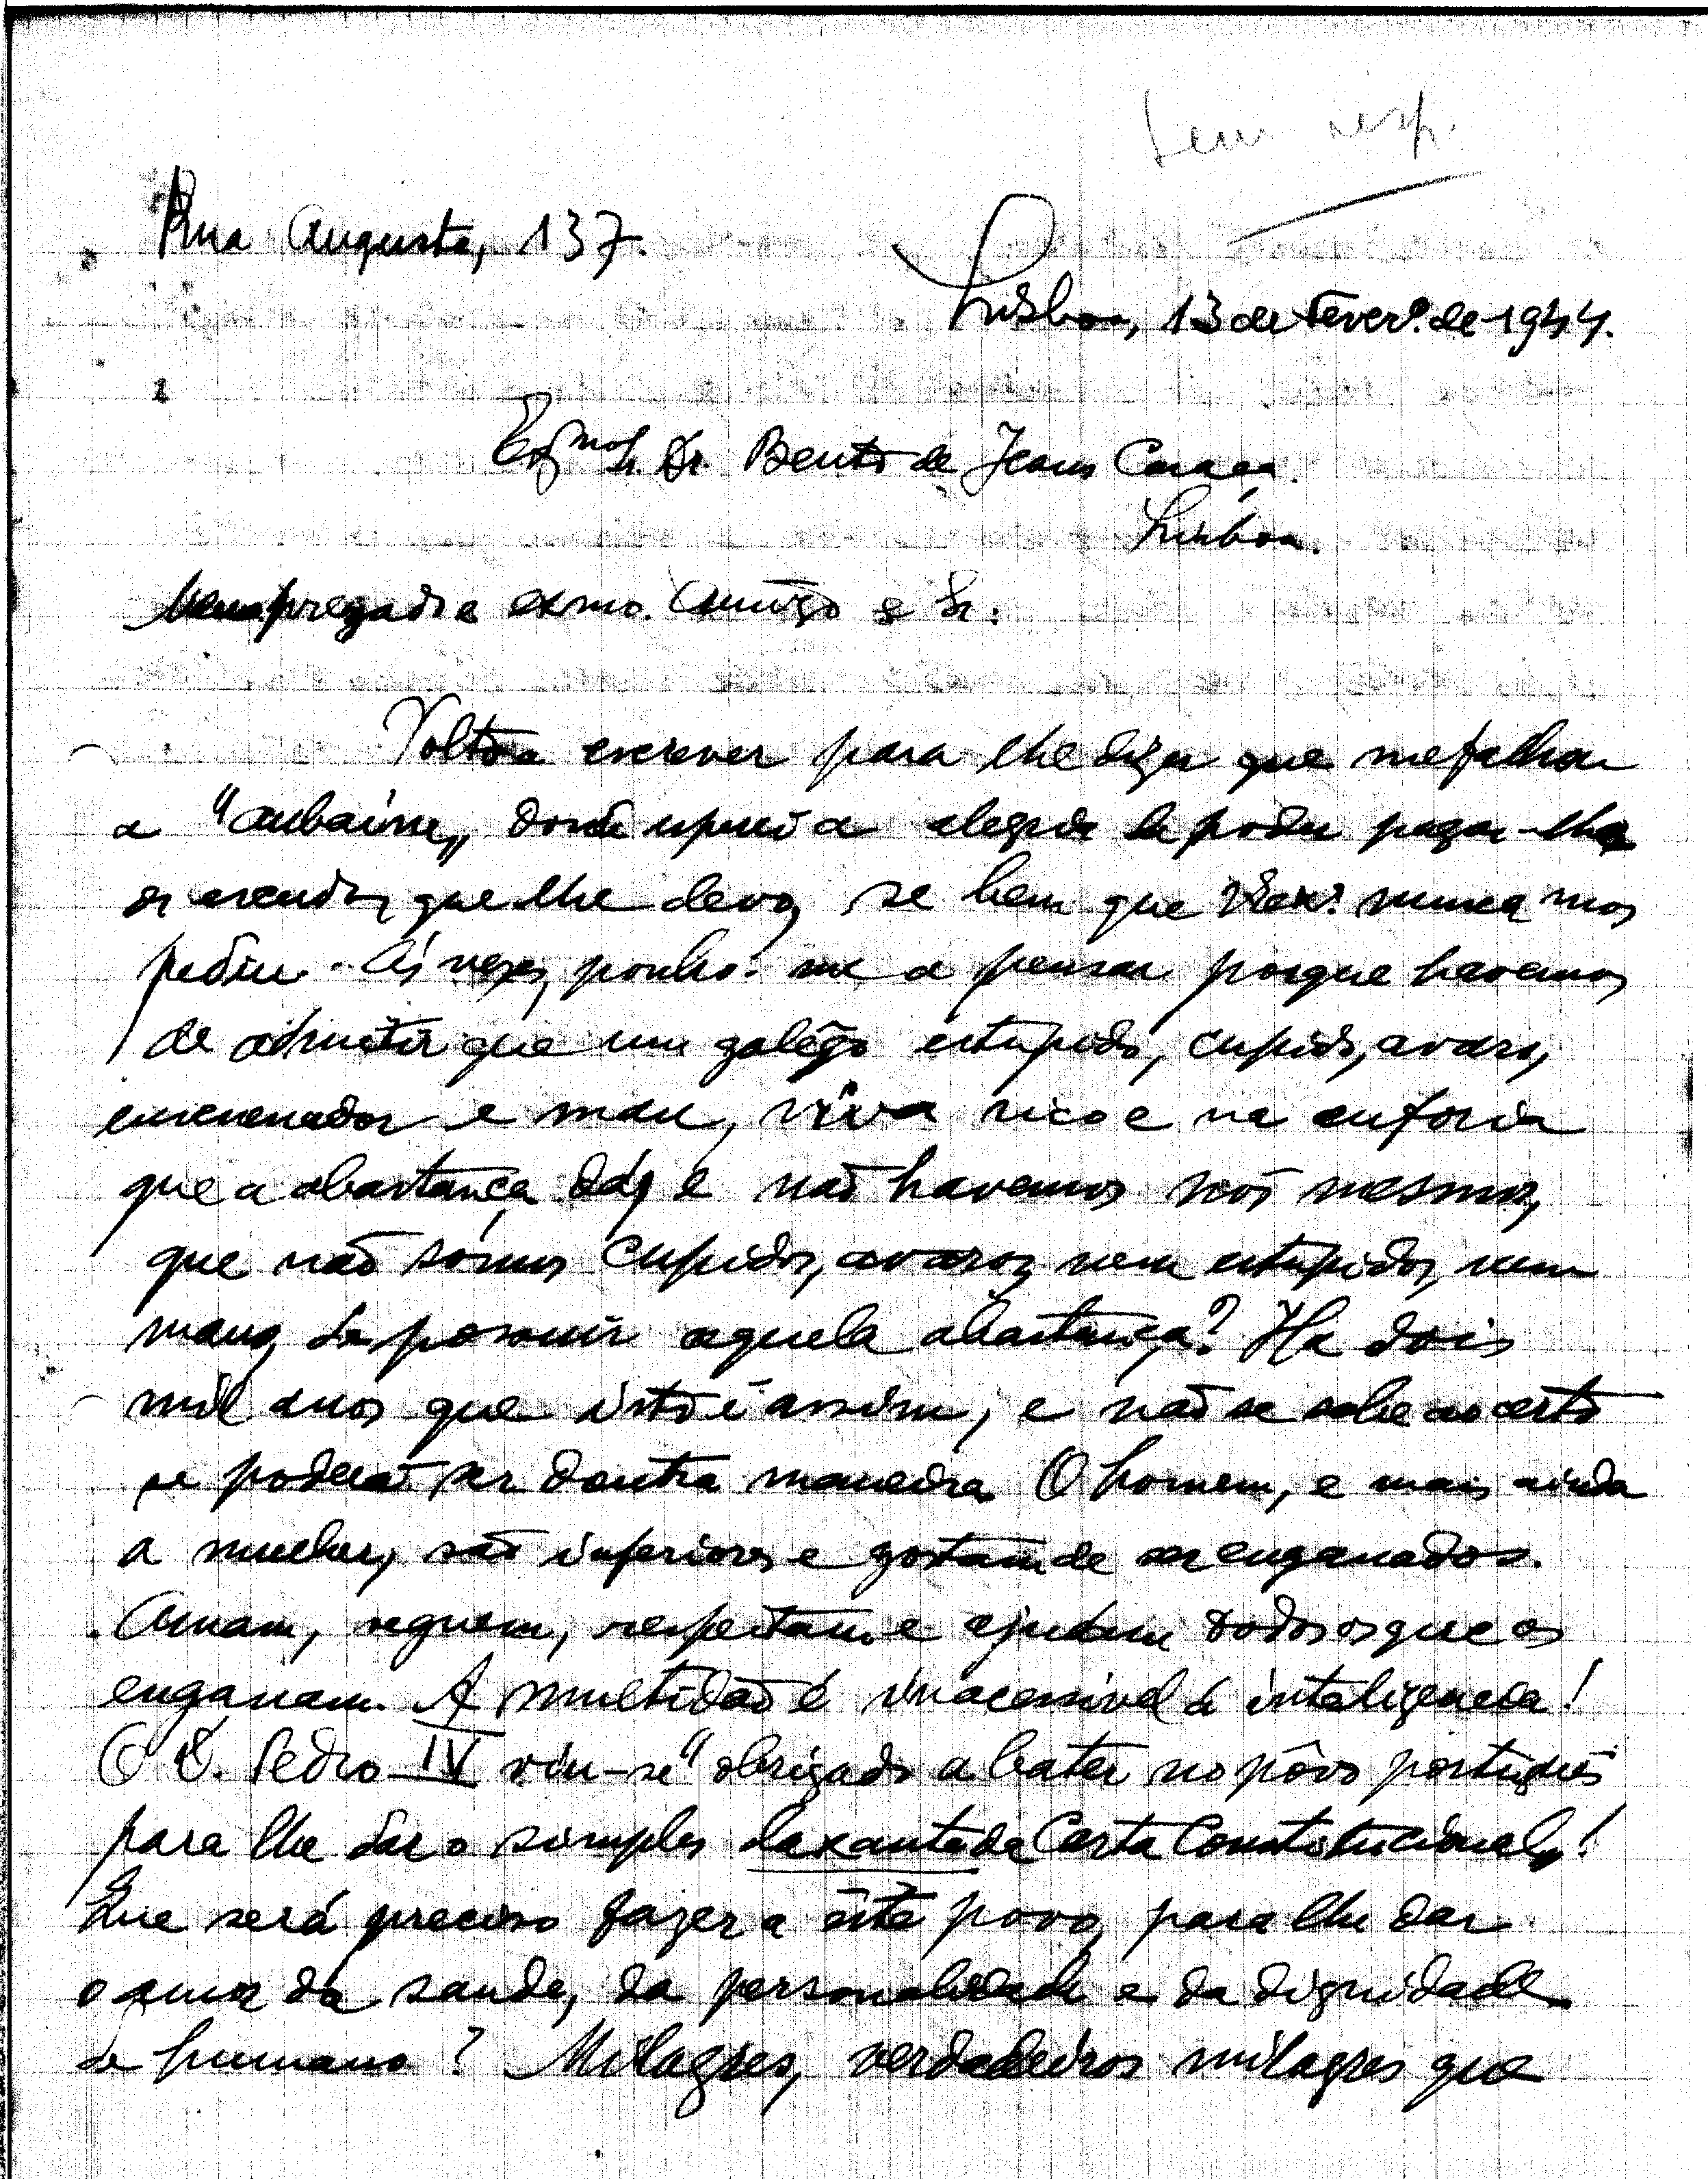 Sem resp.
Rua Augusta, 137.
Lisboa, 13 de Fever.º de 1944.
Exmo Sr. Dr. Bento de Jesus Caraça.
Lisboa.
Meu prezado e exmo. Amigo e Sr.:
Volto a escrever para lhe dizer que me falhou
a "aubaine" donde esperei a alegria de poder pagar-lhe
os escudos que lhe devo, se bem que V. Ex.ª nunca mos
pediu. Ás vezes, ponho-me a pensar porque havemos
de admitir que um galêgo estupido, cupido, avaro,
envenenador e mau, viva rico e na euforia
que a abastança dá, e não havemos nós mesmos,
que não sômos cupidos, avaros, nem estupidos, nem
maus, de possuir aquela abastança? Ha dois
mil anos que isto é assim, e não se sabe ao certo
se poderá ser doutra maneira. O homem, e mais ainda
a mulher, são inferiores e gostam de ser enganados.
Amam, seguem, respeitam e ajudam todos os que os
enganam. A multidão é inacessivel á inteligencia!
O D. Pedro IV viu-se "obrigado a bater no pôvo português
para lhe dar o simples laxante da Carta Constitucional"!
Que será preciso fazer a êste povo, para lhe dar
o amor da saude, da personalidade e da dignidade
de humano? Milagres, verdadeiros milagres que